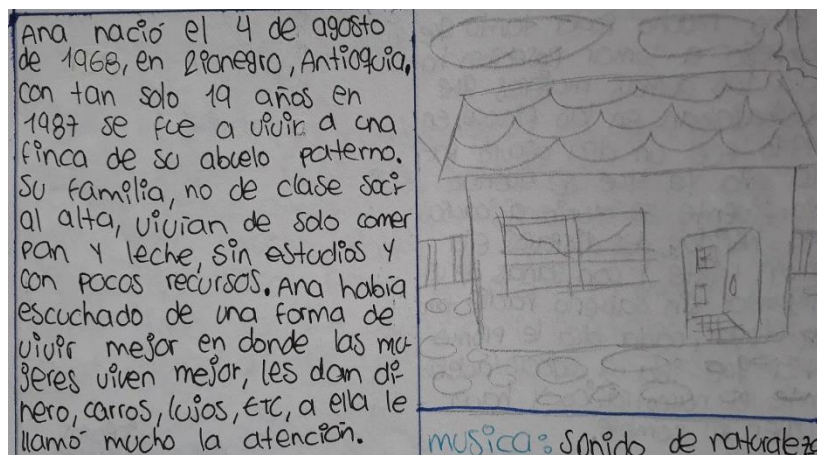 Ana nació el 4 de agosto
de 1968, en Rionegro, Antioquia,
con tan solo 19 años en
1987 se fue a vivir a una
finca de su abuelo paterno.
Su familia, no de clase soci-
al alta, vivian de solo comer
pan y leche, sin estudios y
con pocos recursos. Ana había
escuchado de una forma de
vivir mejor en donde las mu-
jeres viven mejor, les dan di-
nero, carros, lujos, ETC, a ella le
llamó mucho la atención.
musica: Sonido de naturaleza